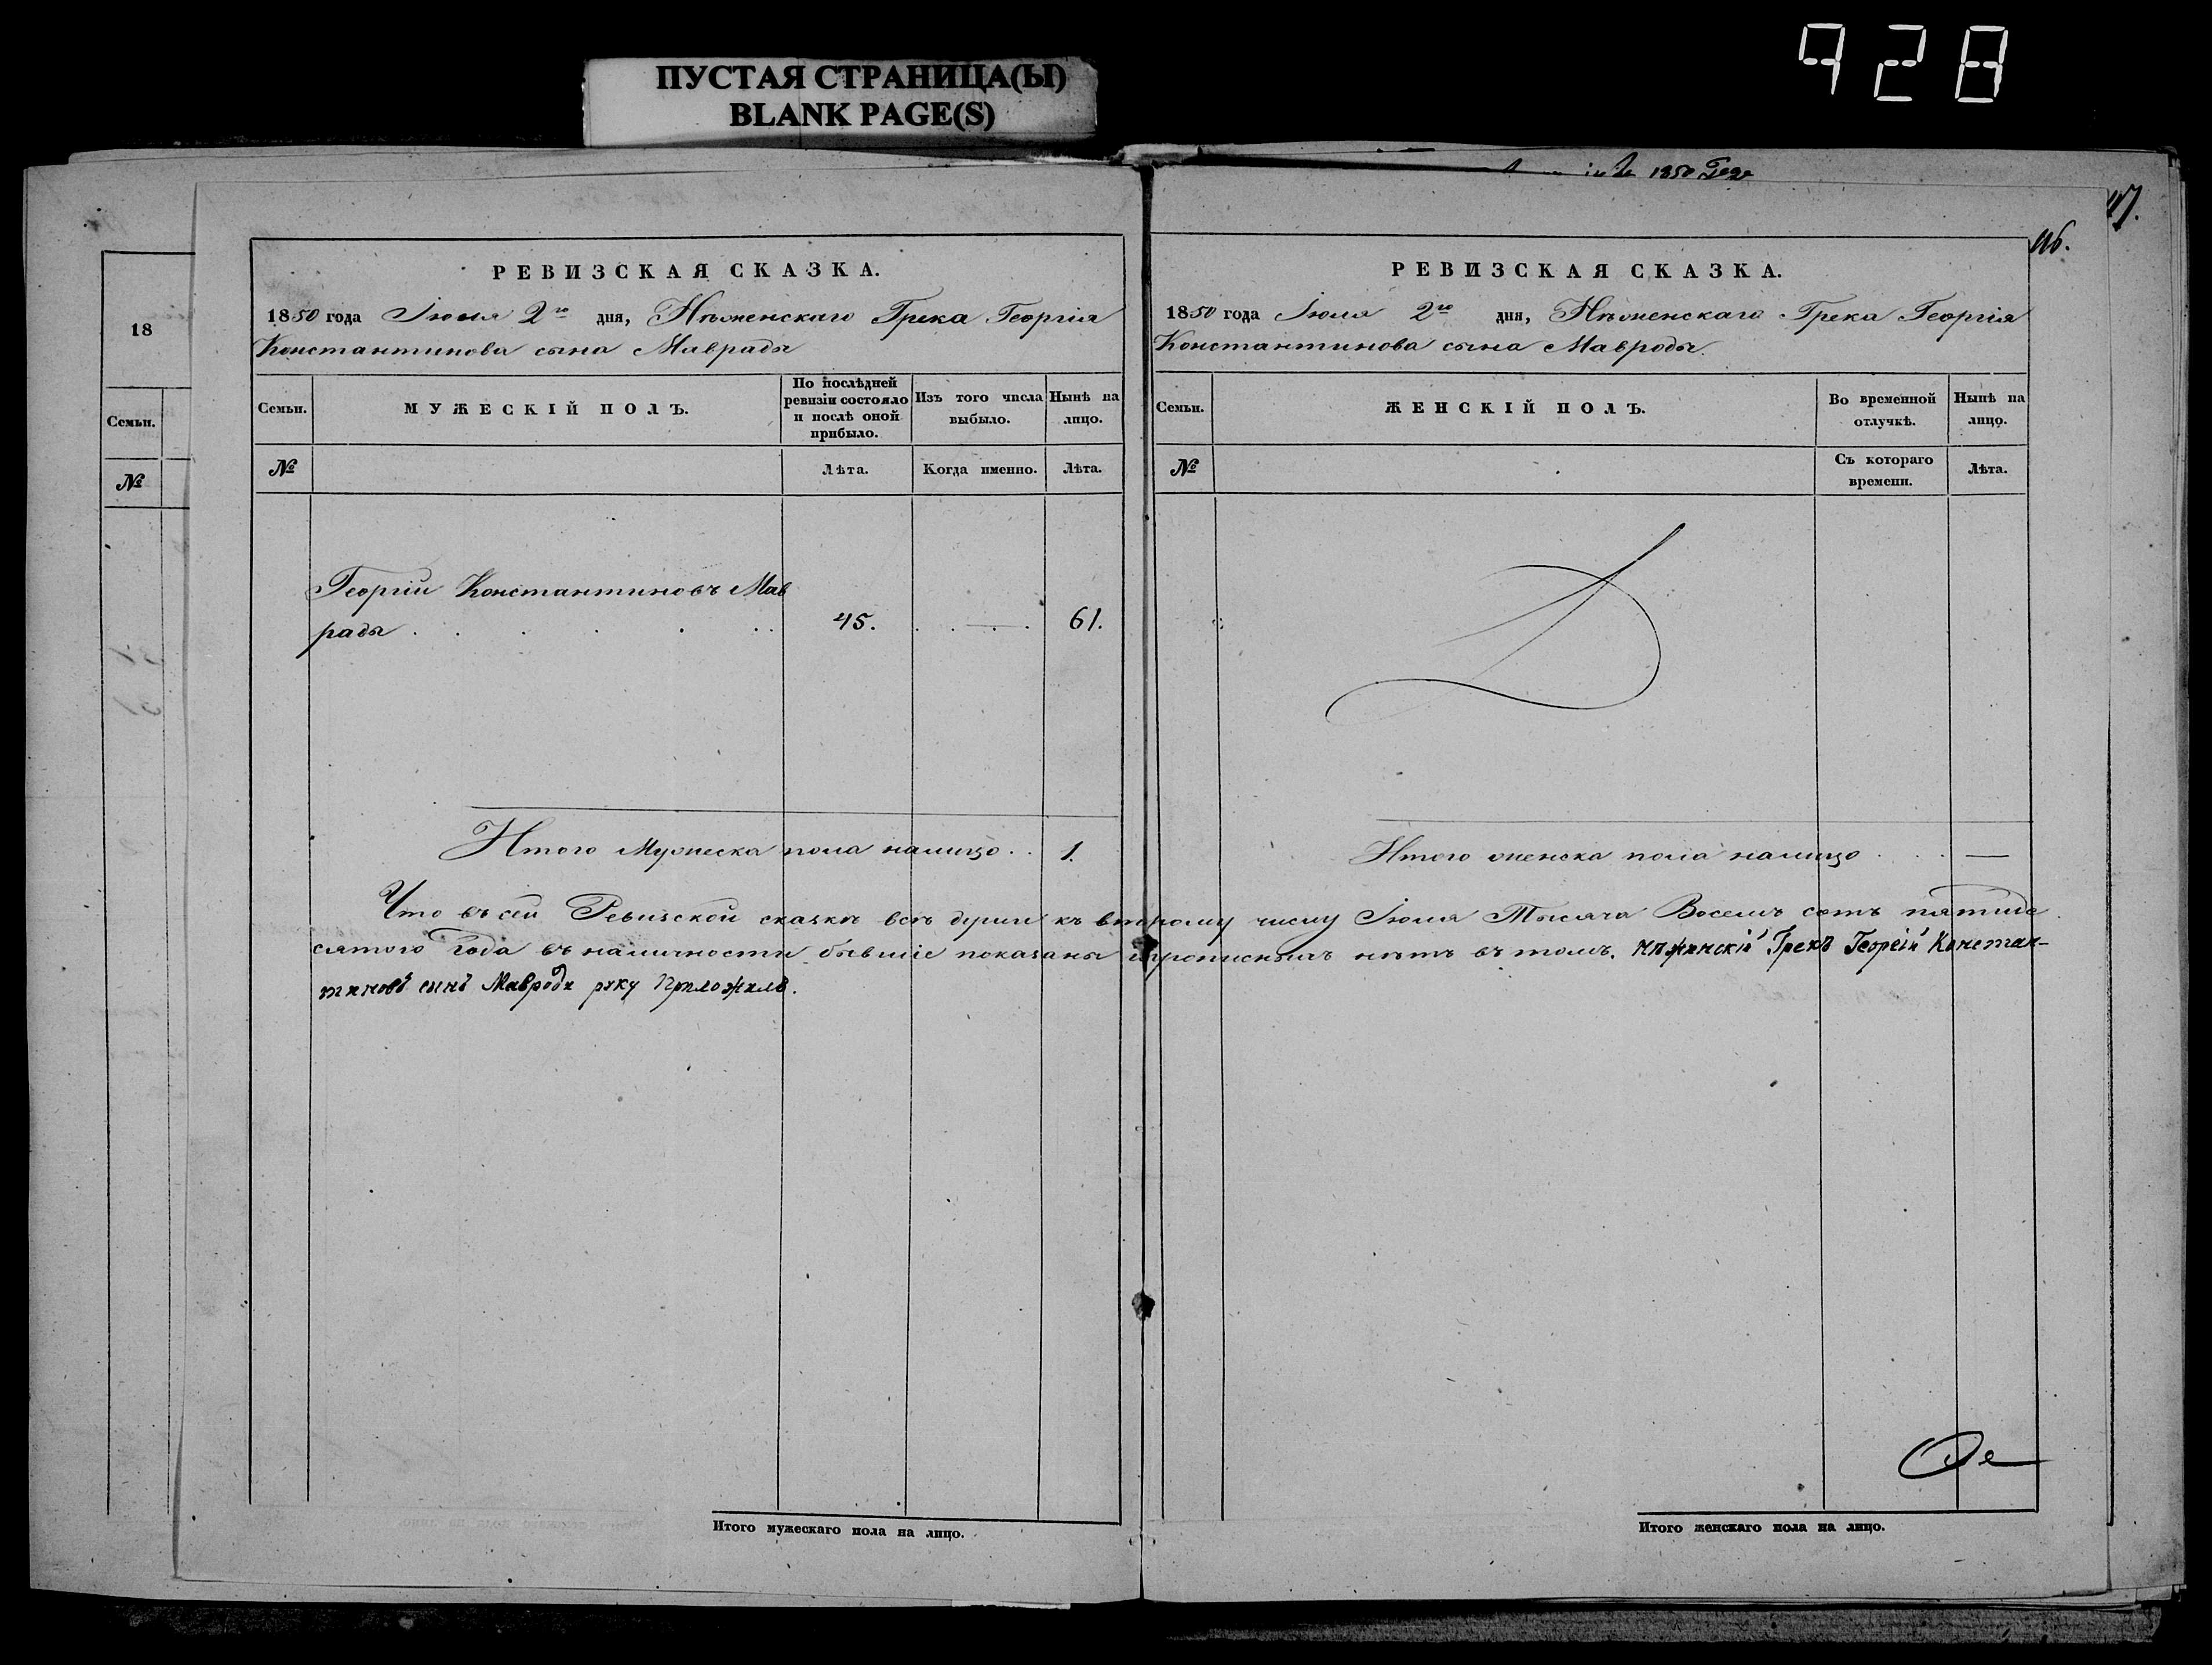 928
ПУСТАЯ СТРАНИЦА(Ы)
BLANK PAGE(S)
1850 Года
117.
116.
18
Семьи.
№
РЕВИЗСКАЯ СКАЗКА.
1850 года Іюля 2го дня, Нѣженскаго Грека Георгія
Константинова сына Маврады
Семьи.
МУЖЕСКІЙ ПОЛЪ.
По послѣдней
ревизіи состояло
и послѣ оной
прибыло.
Изъ того числа
выбыло.
Нынѣ на
лицо.
№
Лѣта.
Когда именно.
Лѣта.
Георгій Константиновъ Мав
рады . . . . . . 45. . . — . 61.
Итого Мужеска пола налицо . . 1.
РЕВИЗСКАЯ СКАЗКА.
1850 года Іюля 2го дня, Нѣженскаго Грека Георгія
Константинова сына Мавроды.
Семьи.
ЖЕНСКІЙ ПОЛЪ.
Во временной
отлучкѣ.
Нынѣ на
лицо.
№
Съ котораго
времени.
Лѣта.
Итого женска пола налицо . . . —
Что въ сей Ревизской сказкѣ всѣ души къ второму числу Іюля Тысяча Восемь сотъ пятиде
сятого Года въ наличности бывшіе показаны и прописныхъ нѣтъ въ томъ. Нѣжинскій Грекъ Георгій Констан-
тиновъ сынъ Мавроди руку Приложилъ.
Итого мужескаго пола на лицо.
Итого женскаго пола на лицо.